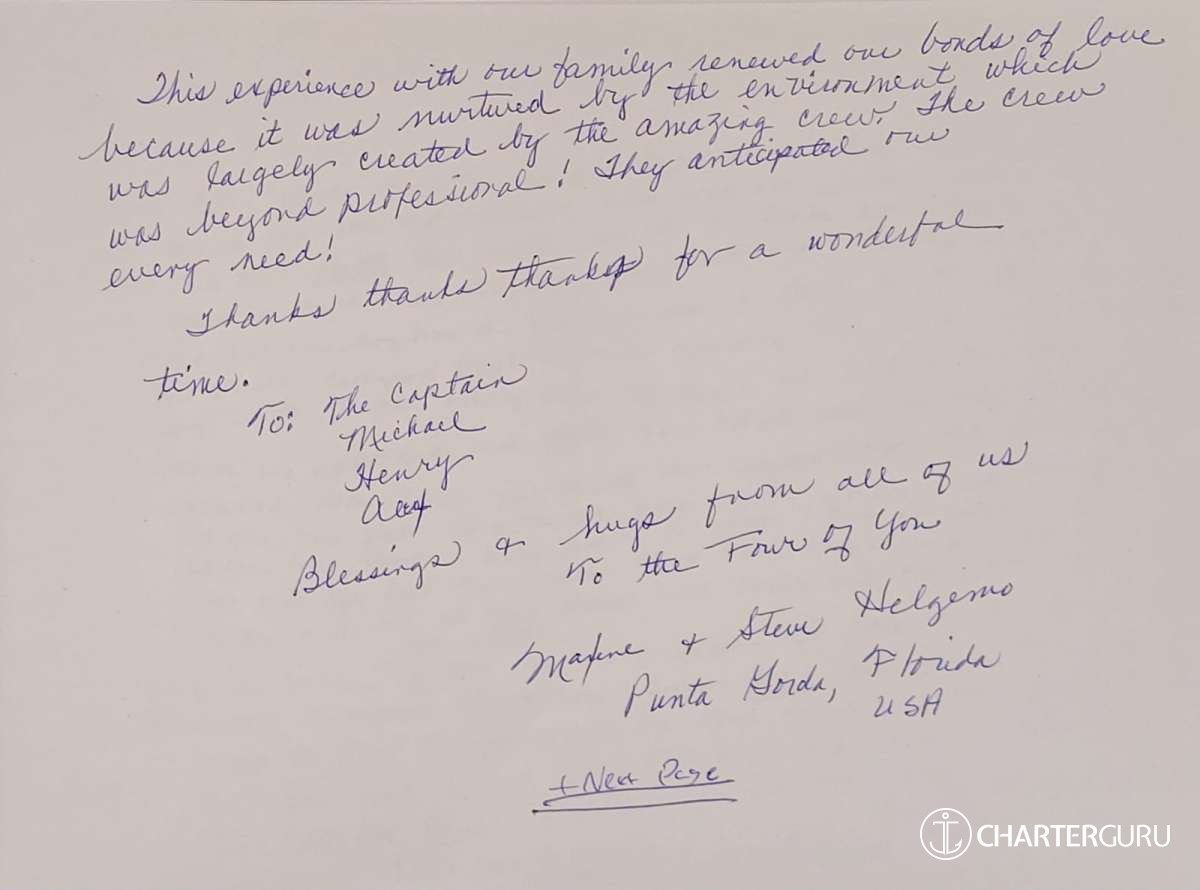 This experience with our family renewed our bonds of love
because it was nurtured by the environment which
was largely created by the amazing crew. The crew
was beyond professional! They anticipated our
every need!
Thanks thanks thanks for a wonderful
time.
To: The Captain
Michael
Henry
Blessings + hugs from all of us
To the Four of You
Maxine + Steve Helgemo
Punta Gorda, Florida
USA
+ Next Page
CHARTERGURU